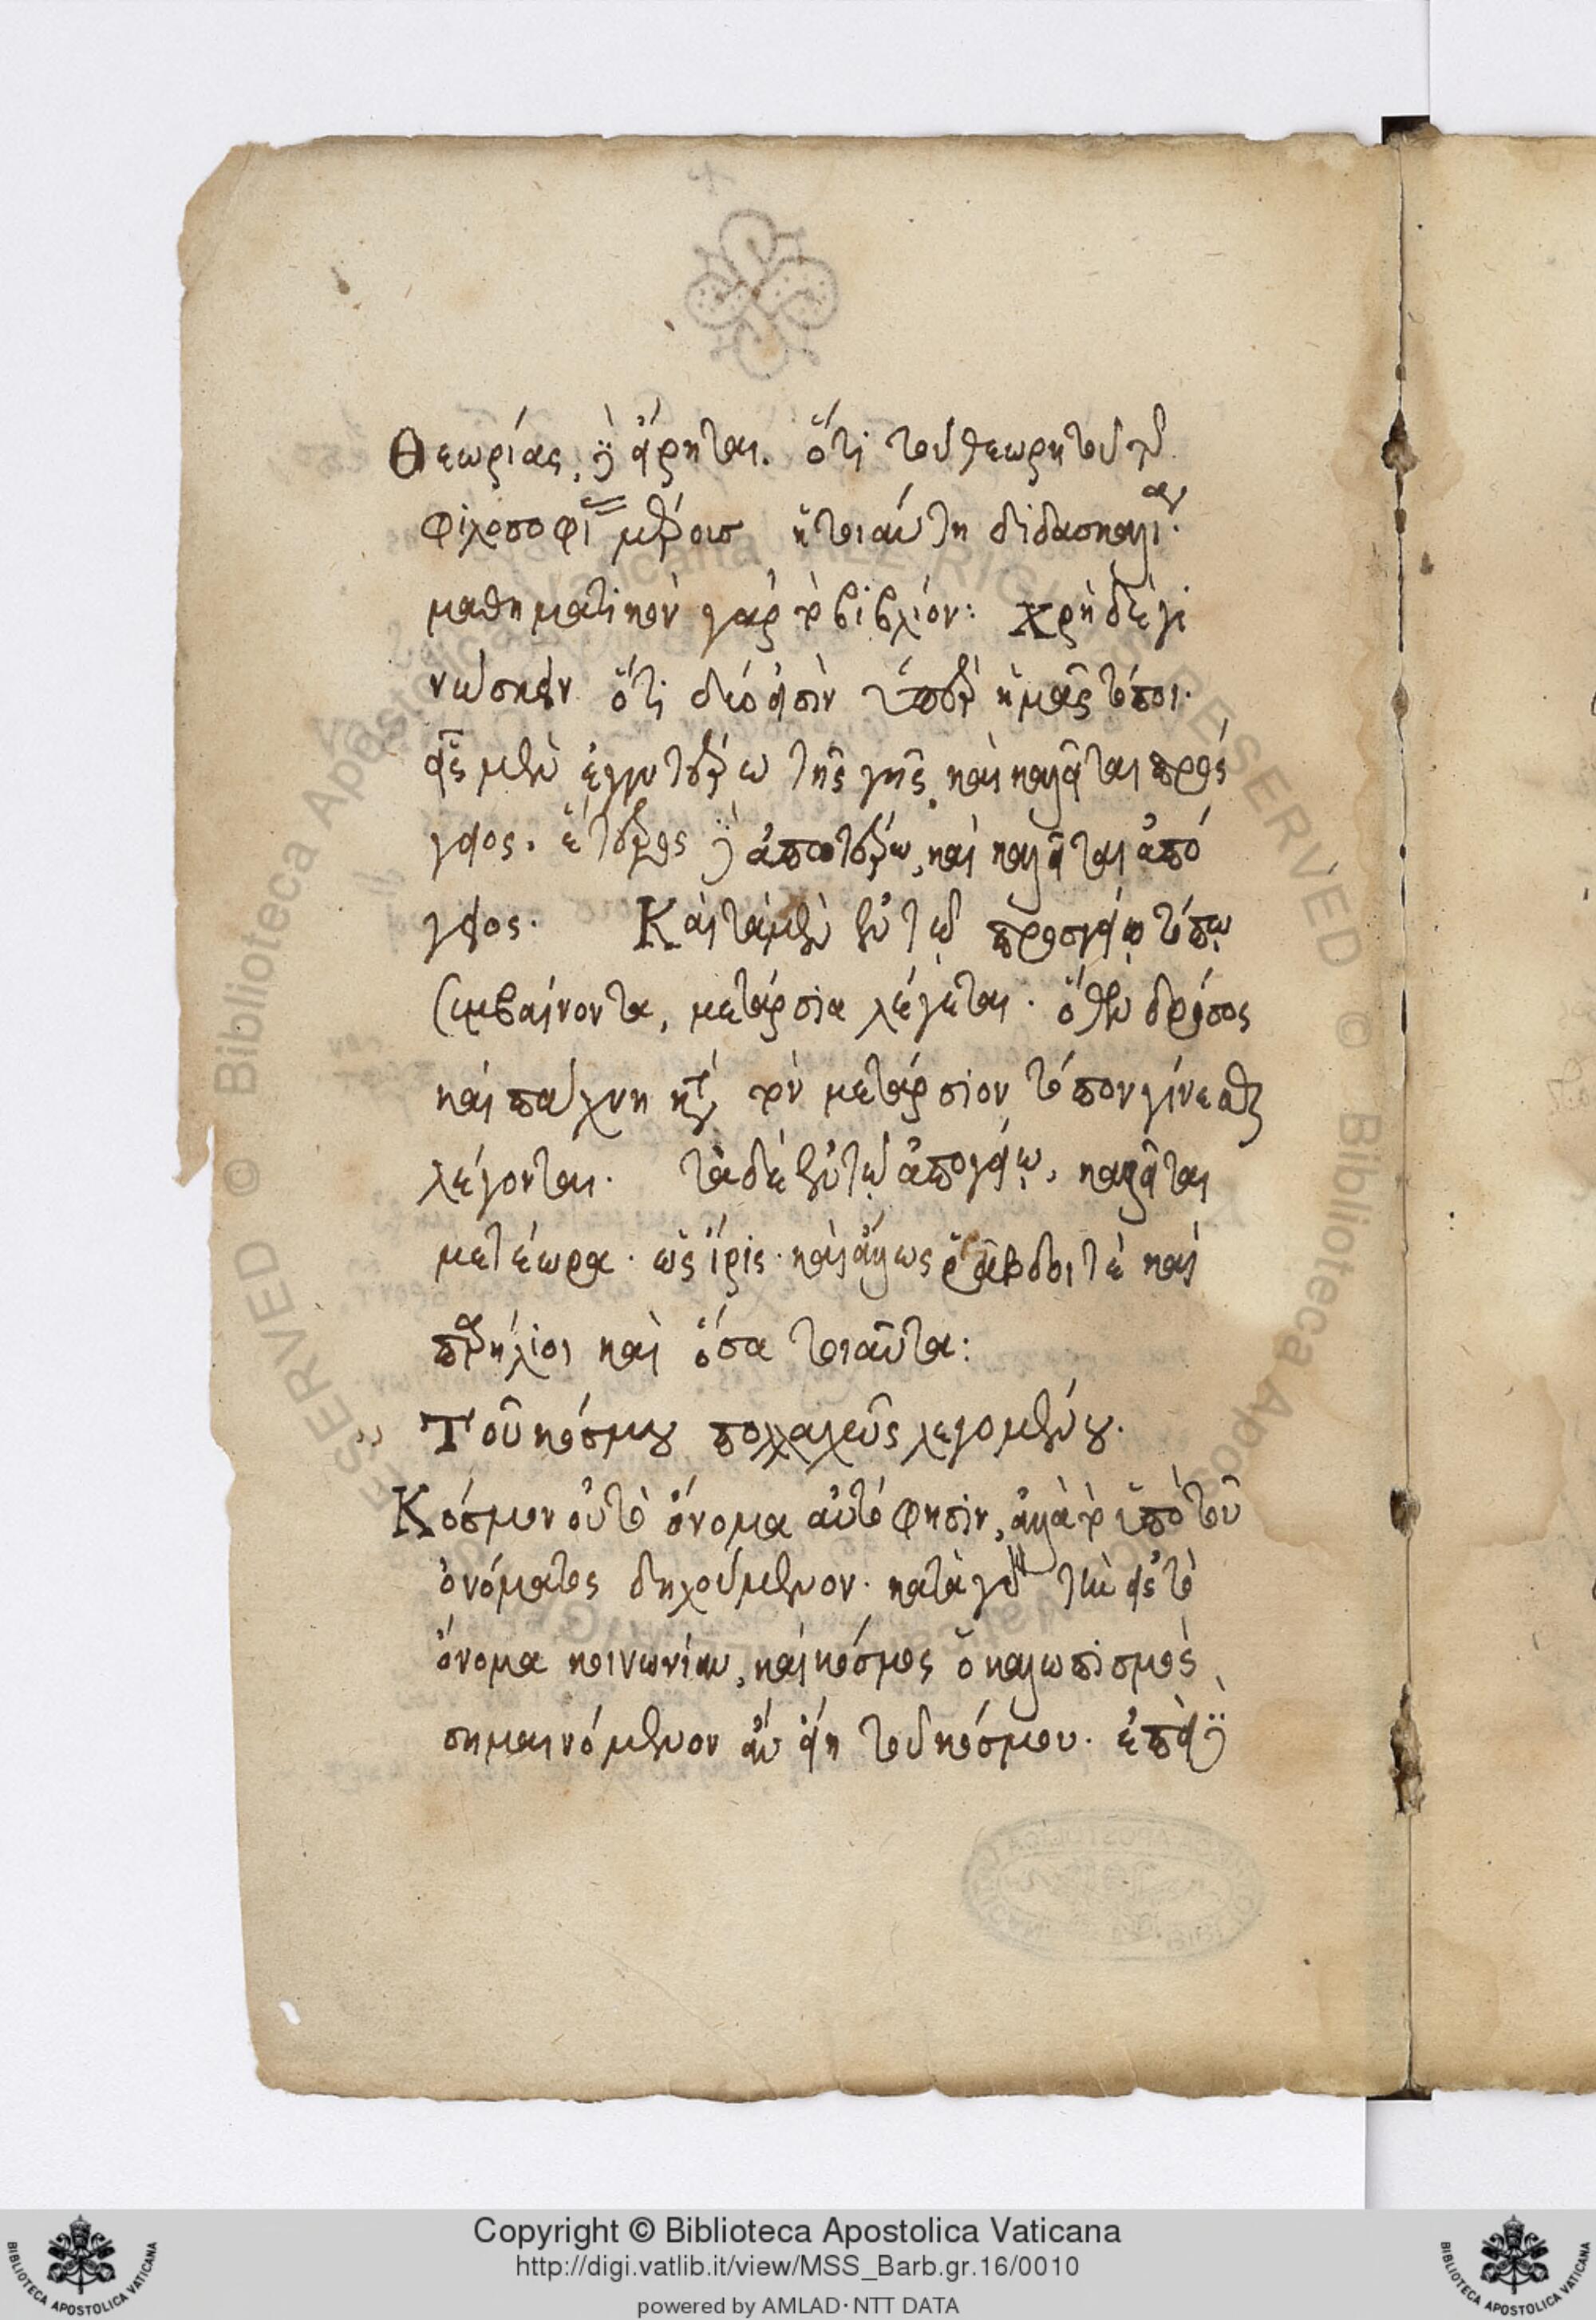 Θεωρίας, δὲ εἴρηται. ὅτι τοῦ θεωρητοῦ τῆς
φιλοσοφίας μέρους ἡ τοιαύτη διδασκαλία.
μαθηματικὸν γὰρ τὸ βιβλίον: χρὴ δὲ γι
νώσκειν ὅτι δύο εἰσὶν ὑπὲρ ἡμᾶς τόποι.
εἷς μὲν ἐγγυτέρω τῆς γῆς, καὶ καλεῖται πρόσ
γειος. ἕτερος δὲ ἀπωτέρω, καὶ καλεῖται ἀπό
γειος. Καὶ τὰ μὲν ἐν τῷ προσγείῳ τόπῳ
συμβαίνοντα, μετάρσια λέγεται. ὅθεν δρόσος
καὶ πάχνη κατὰ τὸν μετάρσιον τόπον γίνεσθαι
λέγονται. τὰ δὲ ἐν τῷ ἀπογείῳ, καλεῖται
μετέωρα. ὡς ἶρις. καὶ ἅλως ῥάβδοι τὲ καὶ
παρήλιοι καὶ ὅσα τοιαῦτα:
" Τοῦ κόσμου πολλαχῶς λεγομένου.
Κόσμον οὐ τὸ ὄνομα αὐτό φησιν, ἀλλὰ τὸ ὑπὸ τοῦ
ὀνόματος δηλούμενον. κατὰ γοῦν τὴν εἰς τὸ
ὄνομα κοινωνίαν, καὶ κόσμος ὁ καλλωπισμὸς,
σημαινόμενον ἂν εἴη τοῦ κόσμου. ἐπεὶ δὲ
Copyright © Biblioteca Apostolica Vaticana
http://digi.vatlib.it/view/MSS_Barb.gr.16/0010
powered by AMLAD·NTT DATA